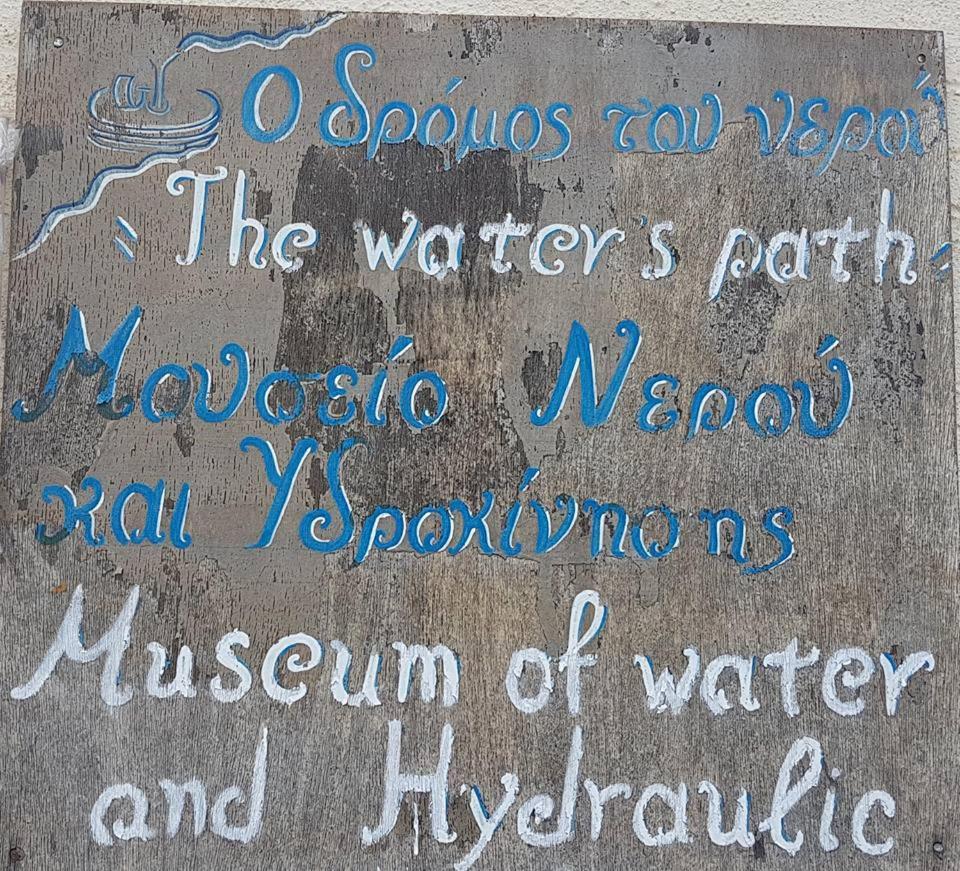 Ο δρόμος του νερού
"The water's path"
Μουσείο Νερού
και Υδροκίνησης
Museum of water
and Hydraulic